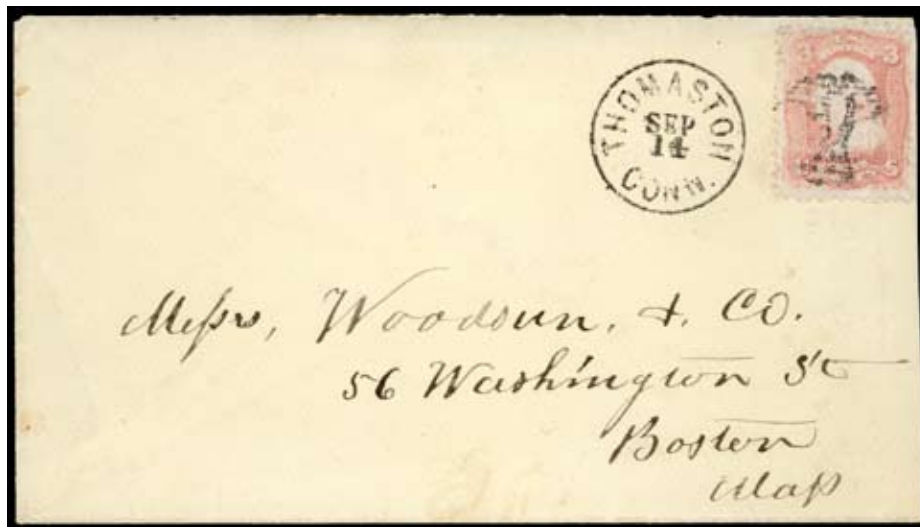 THOMASTON
SEP
14
CONN.
3 3
Messrs, Woodsun, & Co.
56 Washington St
Boston
Mass